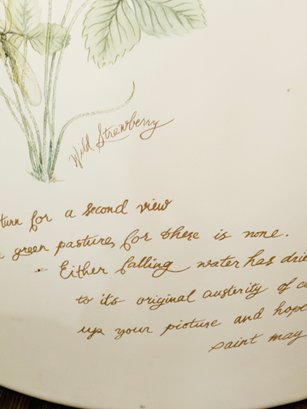 Wild Strawberry
turn for a second view
green pasture, for there is none.
- Either falling water has
to its original austerity of
up your picture and hope
paint may